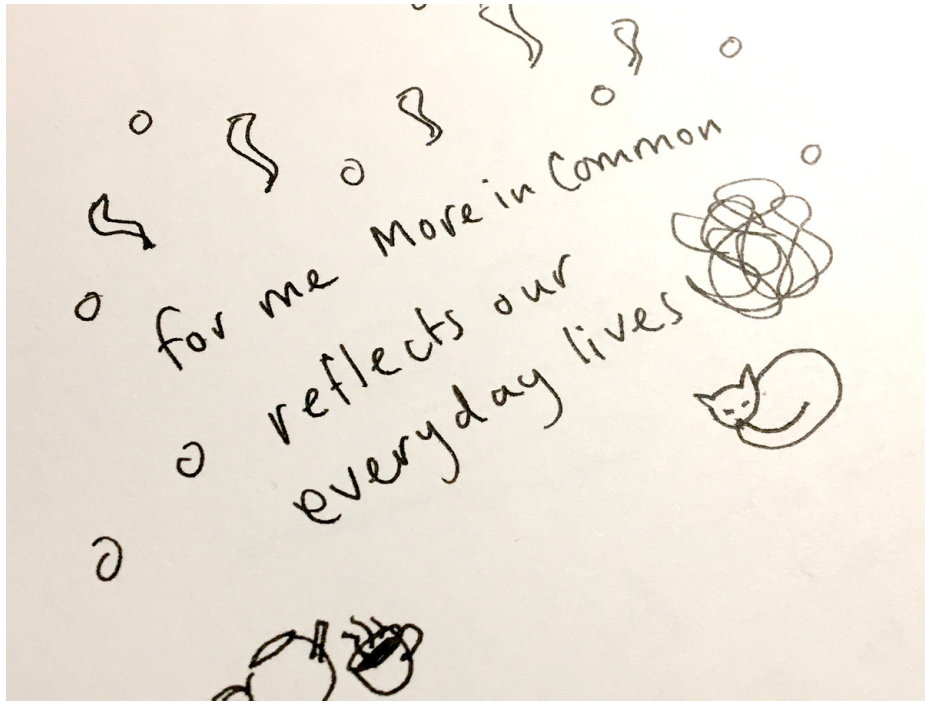 for me More in Common
reflects our
everyday lives